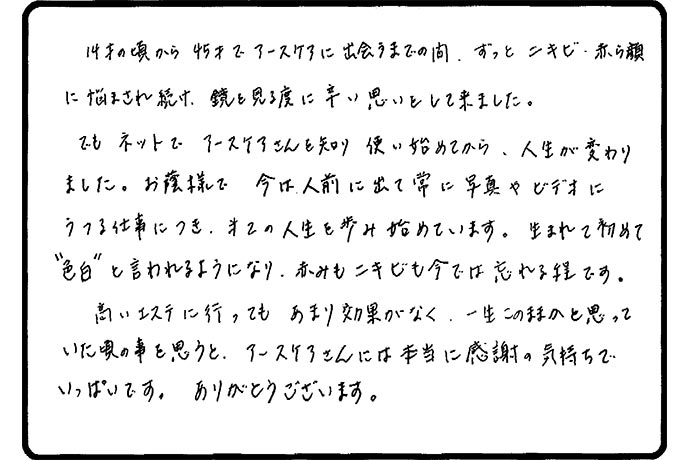 14才の頃から45才でアースケアに出会うまでの間、ずっとニキビ・赤ら顔
に悩まされ続け、鏡を見る度に辛い思いをして来ました。
でもネットでアースケアさんを知り使い始めてから、人生が変わり
ました。お蔭様で今は人前に出て常に写真やビデオに
うつる仕事につき、才2の人生を歩み始めています。生まれて初めて
"色白"と言われるようになり、赤みもニキビも今では忘れる程です。
高いエステに行ってもあまり効果がなく、一生このままかと思って
いた頃の事を思うと、アースケアさんには本当に感謝の気持ちで
いっぱいです。ありがとうございます。